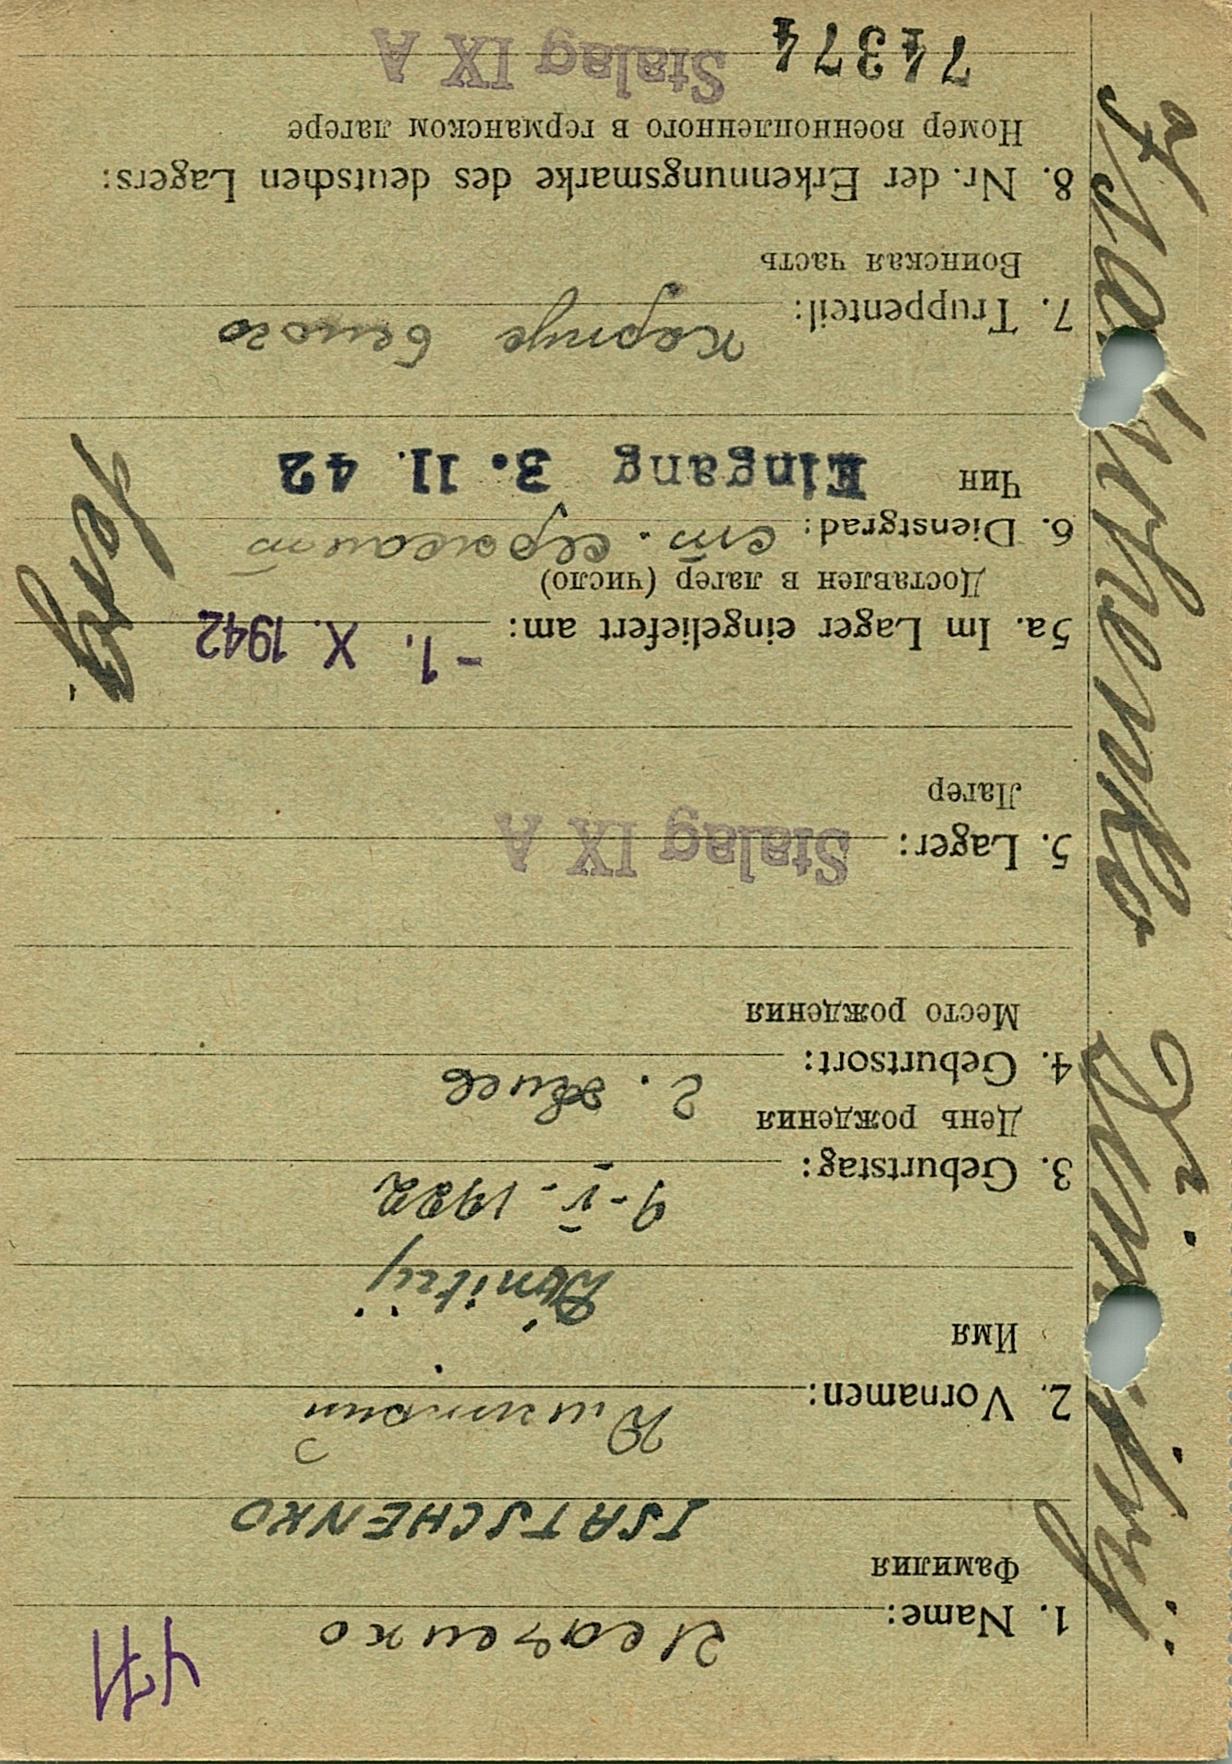 471
1. Name: Исаченко
Фамилия
ISATSCHENKO
2. Vornamen: Дмитрий
Имя
Dimitrij
3. Geburtstag: 9-V-1922
День рождения
4. Geburtsort: г. Киев
Место рождения
5. Lager: Stalag IX A
Лагер
5a. Im Lager eingeliefert am: -1. X. 1942
Доставлен в лагер (число)
6. Dienstgrad: ст. сержант
Чин Eingang 3. 11. 42
7. Truppenteil: Корпус
Воинская часть
8. Nr. der Erkennungsmarke des deutschen Lagers:
Номер военнопленного в германском лагере
74374 Stalag IX A
Isatschenko Dimitrij